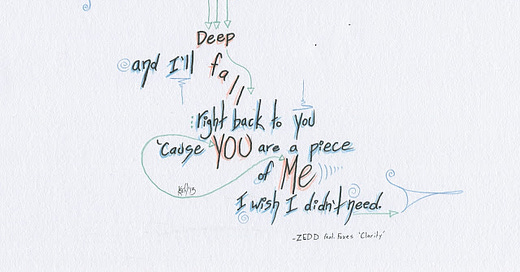 Deep
and I'll fall
right back to you
'Cause YOU are a piece
of Me
I wish I didn't need.
-ZEDD feat. Foxes 'Clarity'